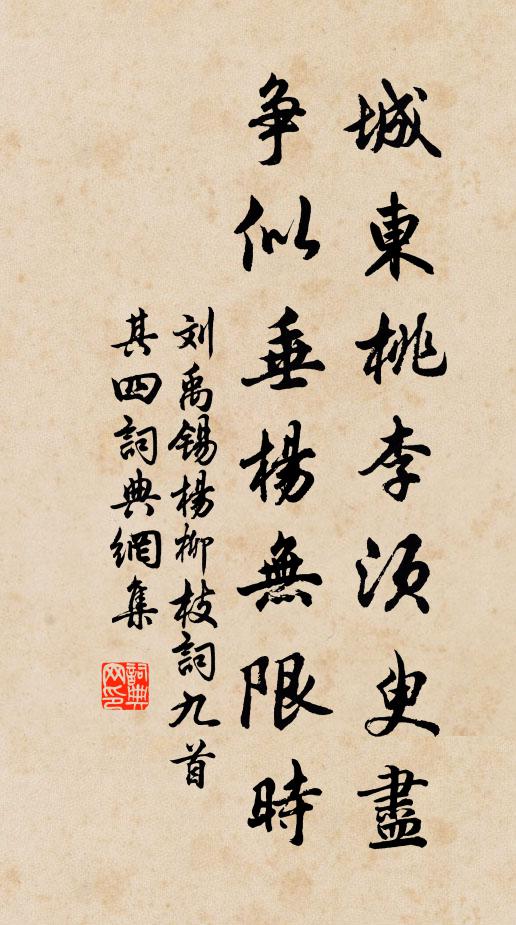 城東桃李須臾盡
争似垂楊無限時
刘禹锡楊柳枝詞九首
其四詞典網集
詞典
网印